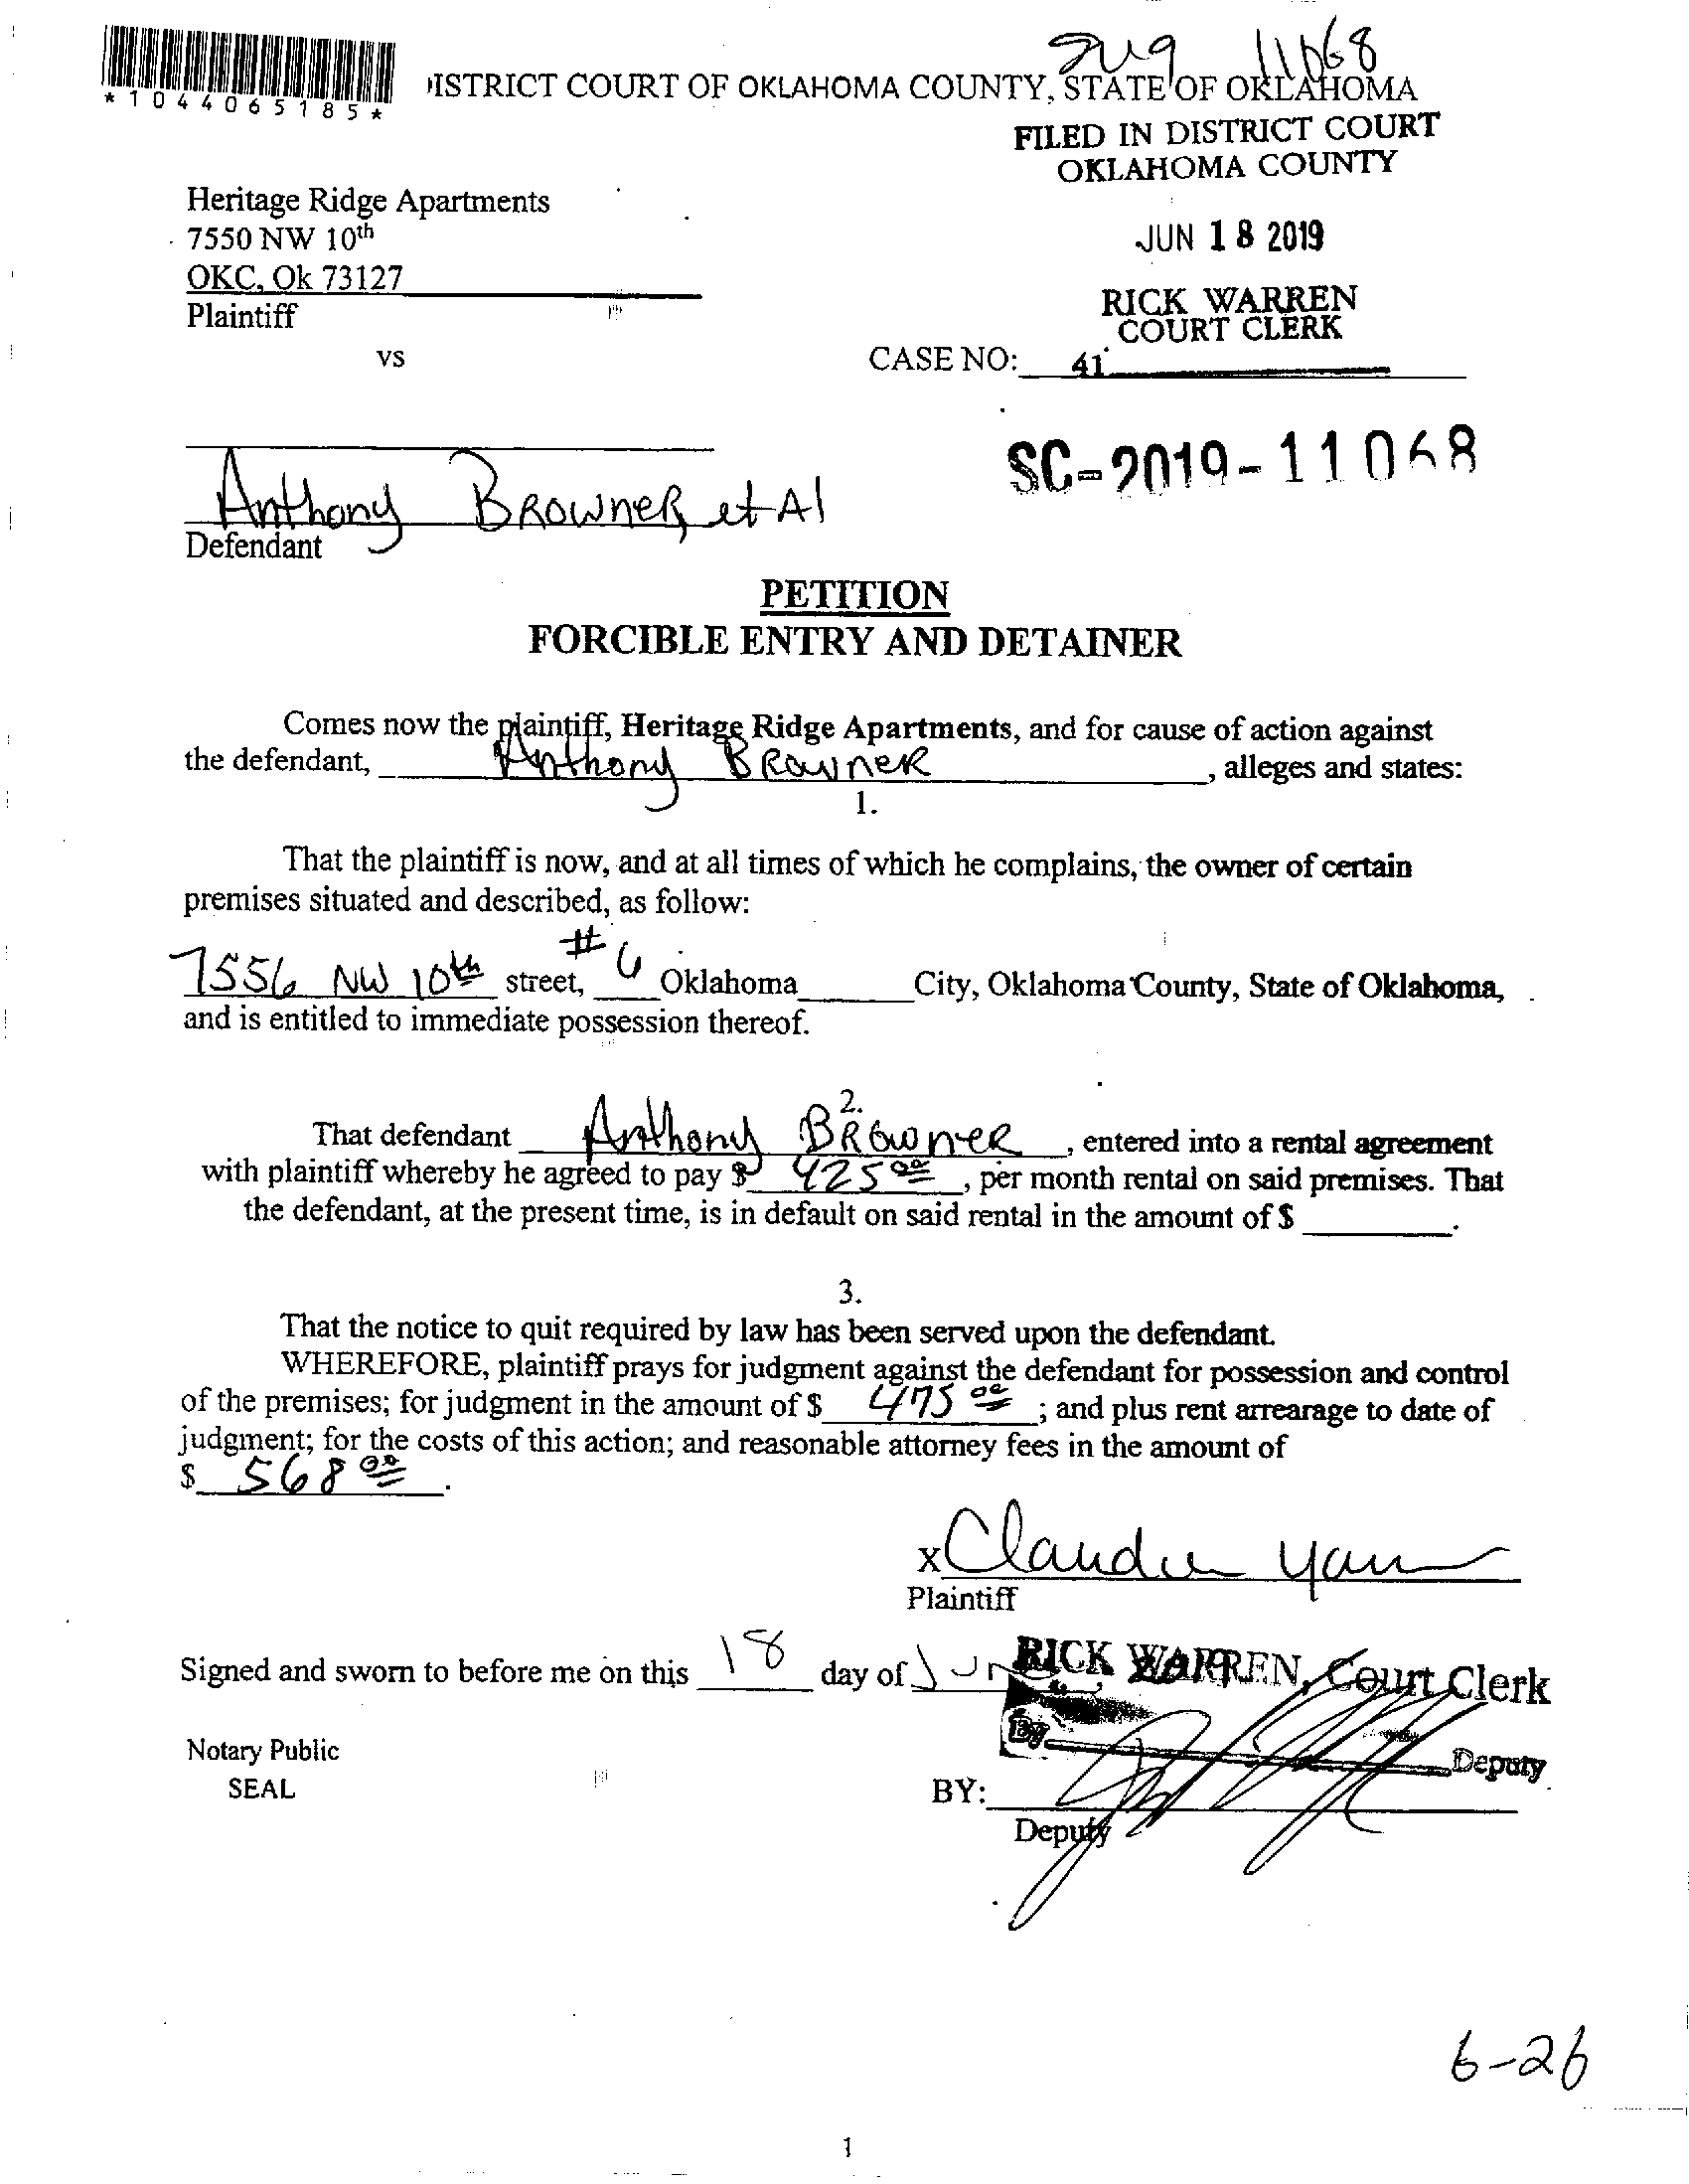 *1044065185*
ISTRICT COURT OF OKLAHOMA COUNTY, STATE OF OKLAHOMA
11068
FILED IN DISTRICT COURT
OKLAHOMA COUNTY
Heritage Ridge Apartments
7550 NW 10th
JUN 18 2019
OKC, Ok 73127
Plaintiff
RICK WARREN
COURT CLERK
vs
CASE NO: 41
SC-2019-11068
Anthony Browner, et Al
Defendant
PETITION
FORCIBLE ENTRY AND DETAINER
Comes now the plaintiff, Heritage Ridge Apartments, and for cause of action against
the defendant, Anthony Browner, alleges and states:
1.
That the plaintiff is now, and at all times of which he complains, the owner of certain
premises situated and described, as follow:
7556 NW 10th street, #6 Oklahoma City, Oklahoma County, State of Oklahoma,
and is entitled to immediate possession thereof.
2.
That defendant Anthony Browner, entered into a rental agreement
with plaintiff whereby he agreed to pay $ 425 00, per month rental on said premises. That
the defendant, at the present time, is in default on said rental in the amount of $ .
3.
That the notice to quit required by law has been served upon the defendant.
WHEREFORE, plaintiff prays for judgment against the defendant for possession and control
of the premises; for judgment in the amount of $ 475 00; and plus rent arrearage to date of
judgment; for the costs of this action; and reasonable attorney fees in the amount of
$ 568 00.
x Claudia
Plaintiff
Signed and sworn to before me on this 18 day of June, 2019
RICK WARREN, Court Clerk
Notary Public
By Deputy
SEAL
BY:
Deputy
6-26
1